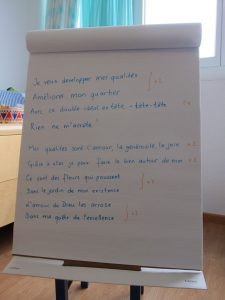 Je veux développer mes qualités } x2
Améliorer mon quartier
Avec ce double idéal en tête - tête - tête x2
Rien ne m'arrête
Mes qualités sont l'amour, la générosité, la joie x2
Grâce à elles je peux faire le bien autour de moi x2
Ce sont des fleurs qui poussent } x2
Dans le jardin de mon existence
L'amour de Dieu les arrose } x2
Dans ma quête de l'excellence